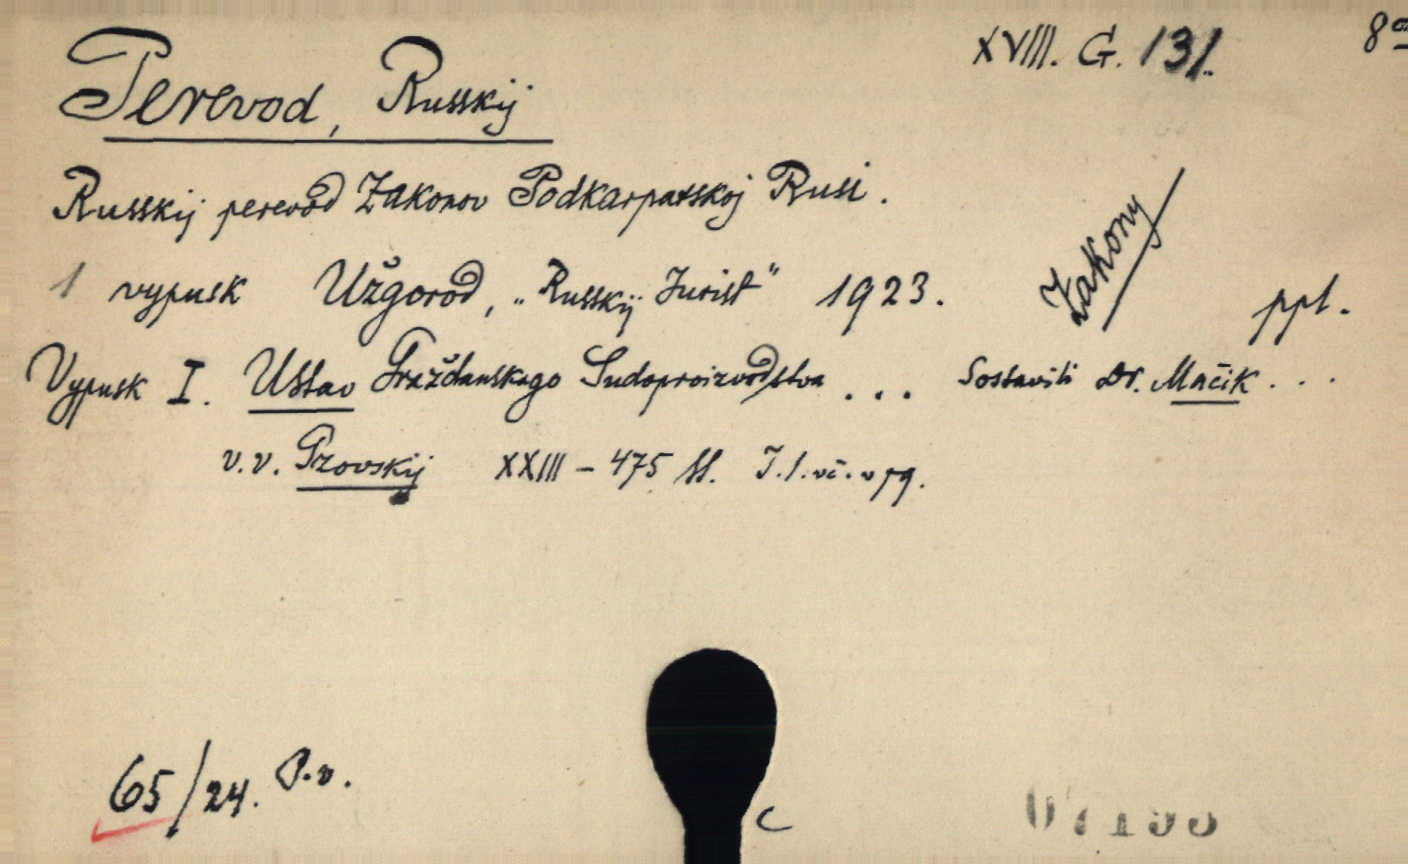 XVIII. G. 131. 8°
Perevod, Russkij
Russkij perevod Zakonov Podkarpatskoj Rusi.
Zakony
1 vypusk Užgorod, „Russkij Jurist" 1923. ppl.
Vypusk I. Ustav Graždanskago Sudoproizvodstva ... Sostavili Dr. Mačik ...
v.v. XXIII – 475 ss.
65/24. P.v.
C